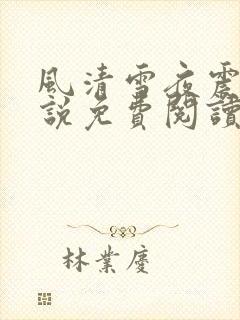 風清雪夜震
說免費閱讀
林業慶